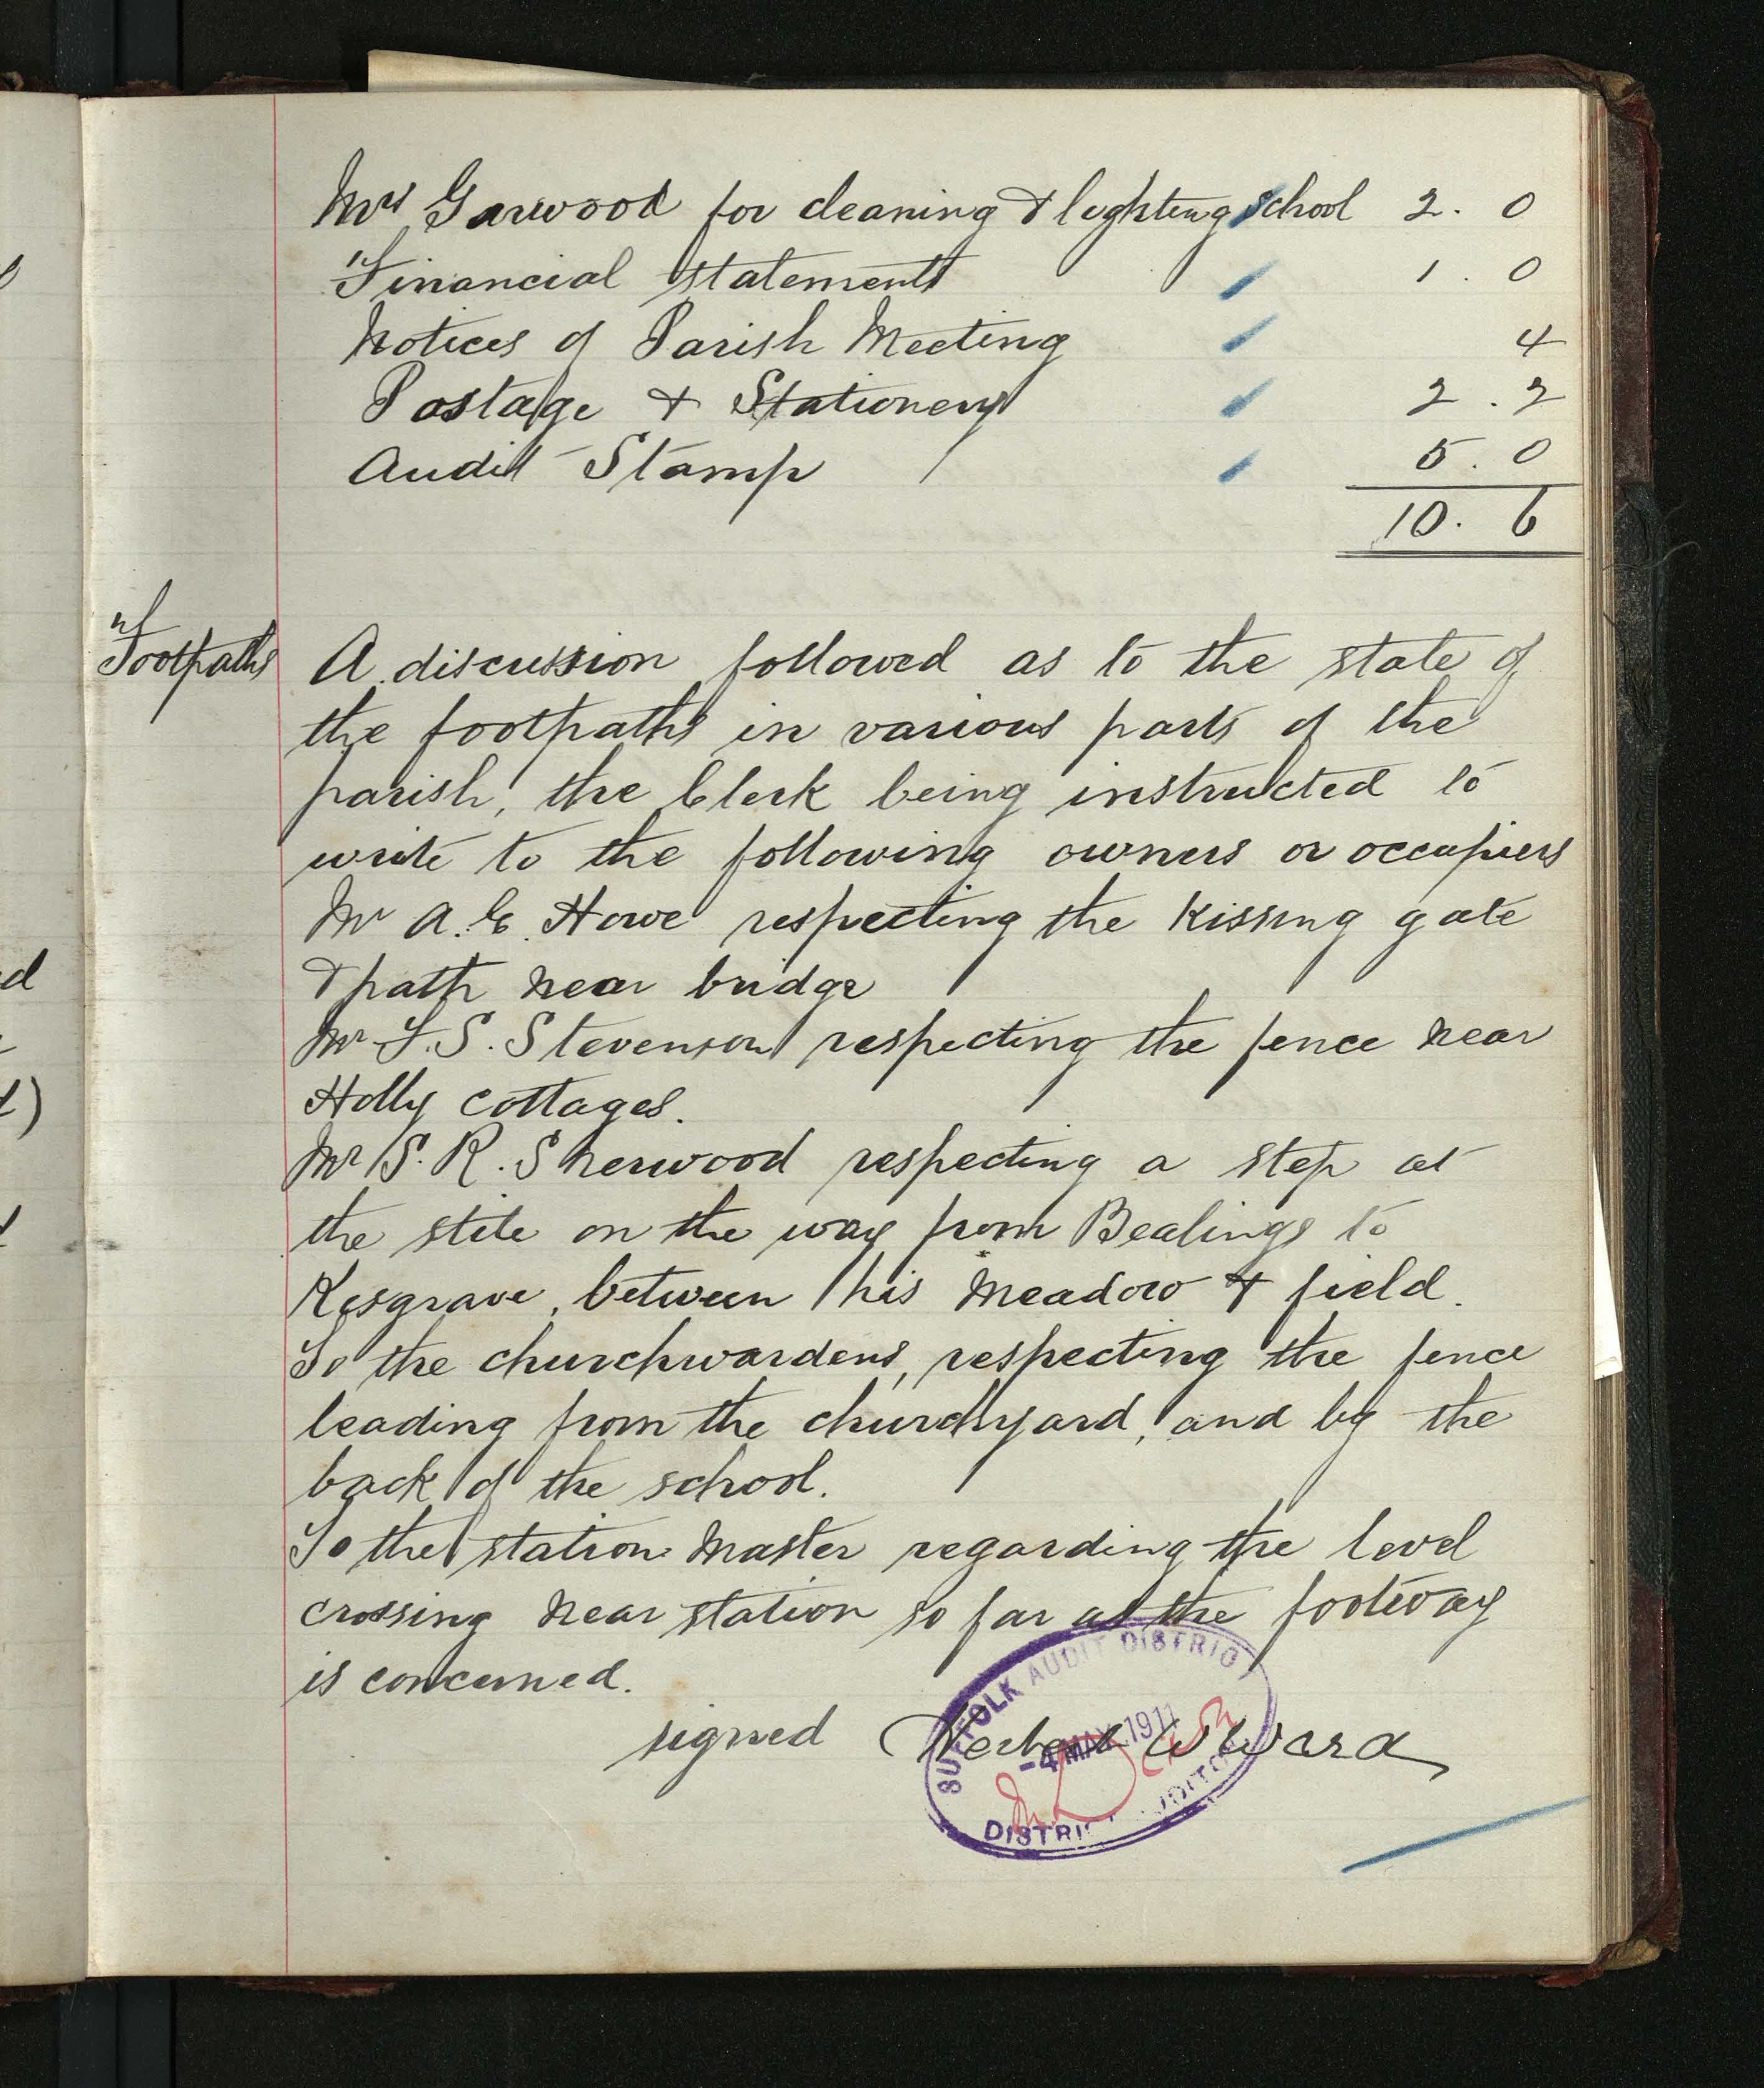 Mrs Garwood for cleaning & lighting school 2. 0
Financial statements 1. 0
Notices of Parish Meeting 4
Postage & Stationery 2. 2
Audit Stamp 5. 0
10. 6
Footpaths
A discussion followed as to the state of
the footpaths in various parts of the
parish, the Clerk being instructed to
write to the following owners or occupiers
Mr A. E. Howe respecting the Kissing gate
& path near bridge
Mr F. S. Stevenson respecting the fence near
Holly Cottages.
Mr S. R. Sherwood respecting a step at
the stile on the way from Bealings to
Kesgrave, between his meadow & field.
To the churchwardens, respecting the fence
leading from the churchyard, and by the
back of the school.
To the station Master regarding the level
crossing near station so far as the footway
is concerned.
signed Herbert W Ward
SUFFOLK AUDIT DISTRIC
-4 MAY 1911